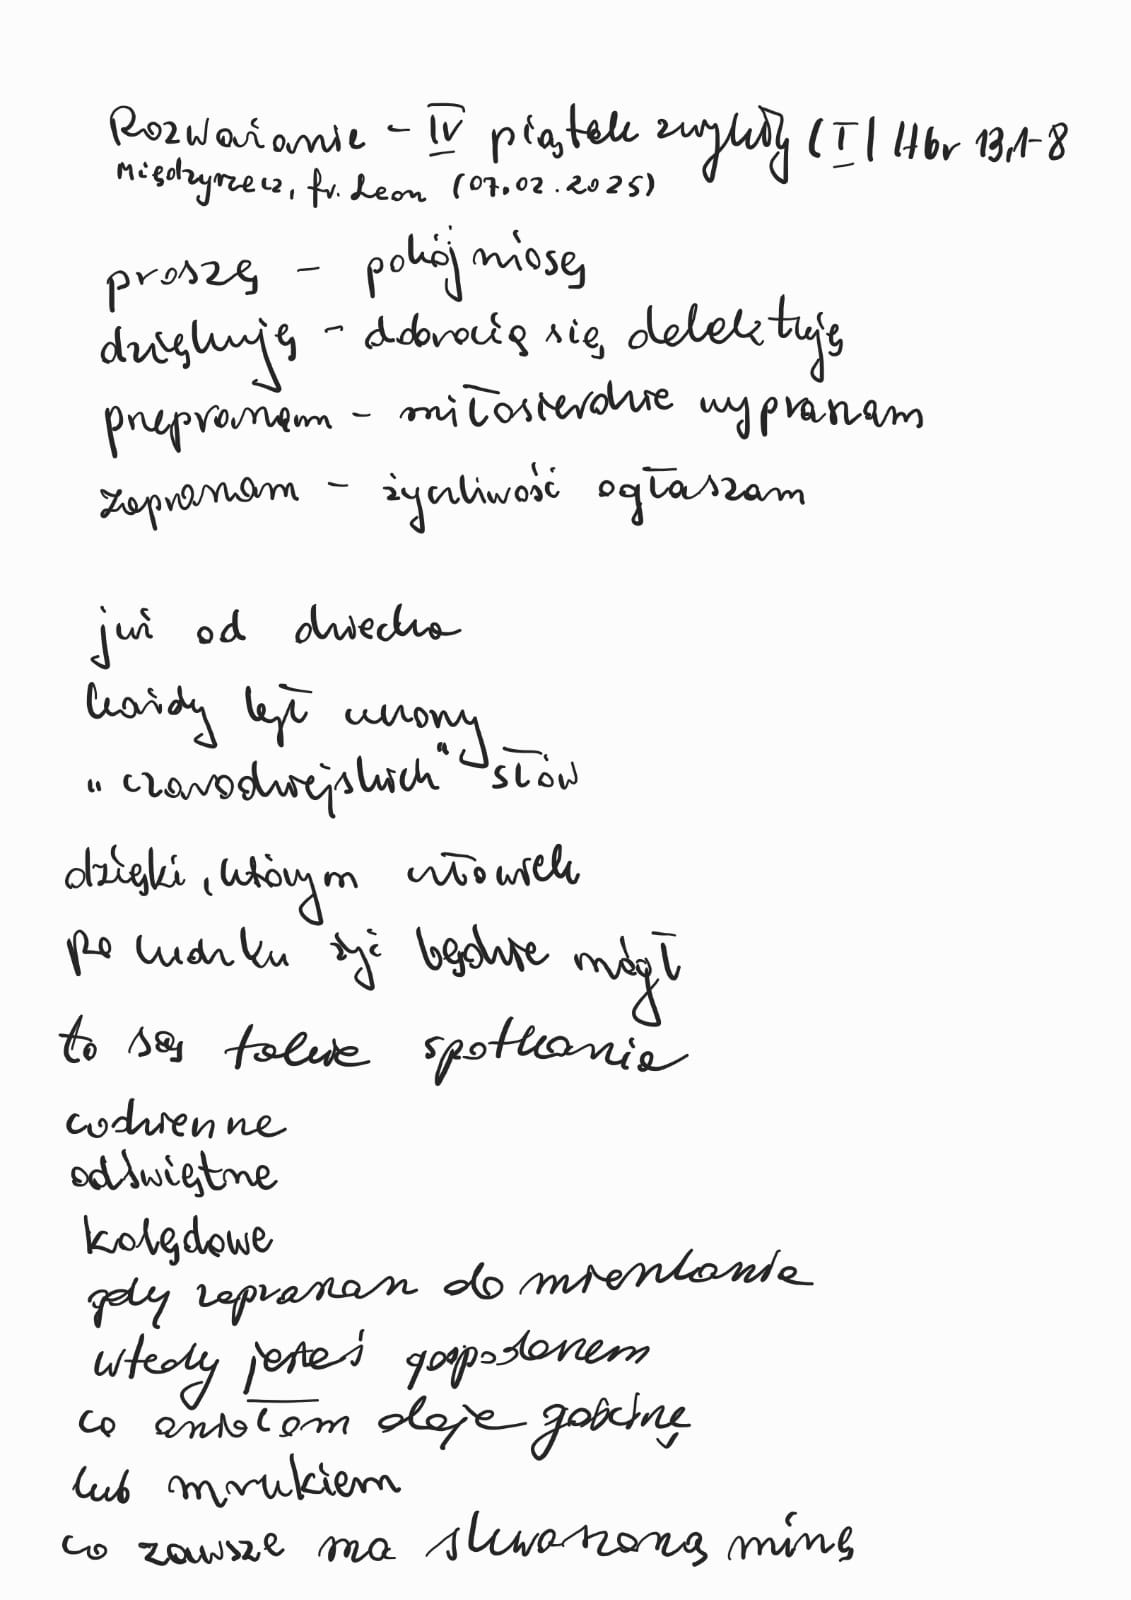 Rozważanie - IV piątek zwykły (I) Hbr 13,1-8
Międzyrzecz, fr. Leon (07.02.2025)
proszę - pokój niosę
dziękuję - dobrocią się delektuję
przepraszam - miłosierdzie wypraszam
zapraszam - życzliwość ogłaszam
już od dziecka
każdy był uczony
"czarodziejskich" słów
dzięki, którym człowiek
po ludzku żyć będzie mógł
to są takie spotkania
codzienne
odświętne
kolędowe
gdy zapraszasz do mieszkania
wtedy jesteś gospodarzem
co aniołom daje gościnę
lub mrukiem
co zawsze ma skwaszoną minę